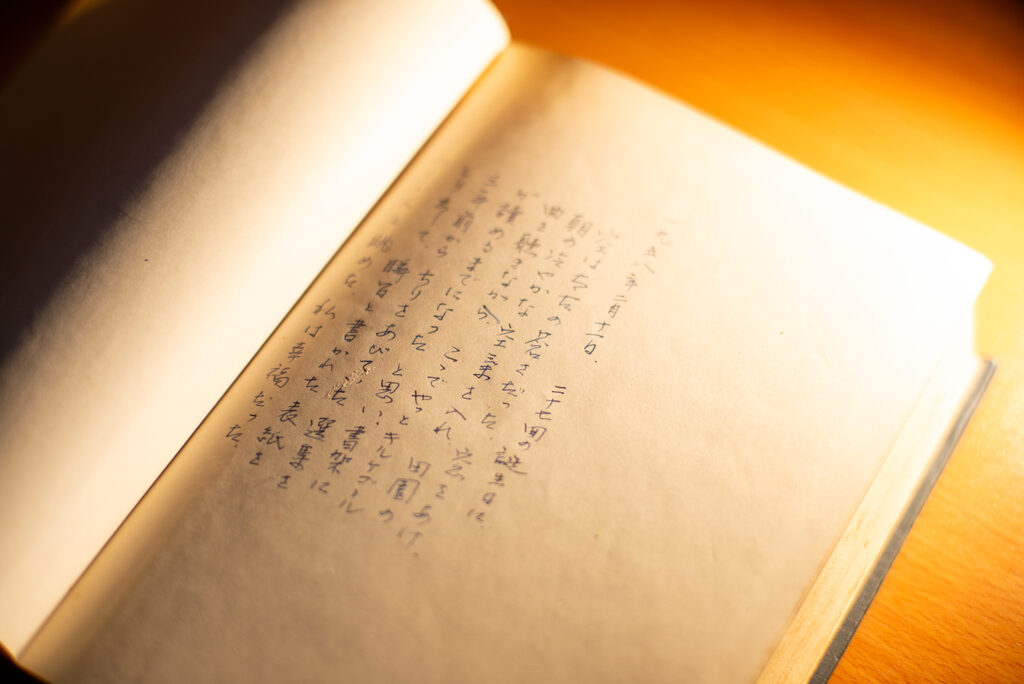 一九五八年二月十一日. 二十七回の誕生日に.
空は の蒼さだった. 窓をあけ.
朝の冷やかな空気を入れ 田園の
曲を聴きながら. やっとキルケゴール
が読めるまでになったと思い 書架に
三年前からちりをあびていた選集
と書かれた表紙を
眺めた. 私は幸福だった.